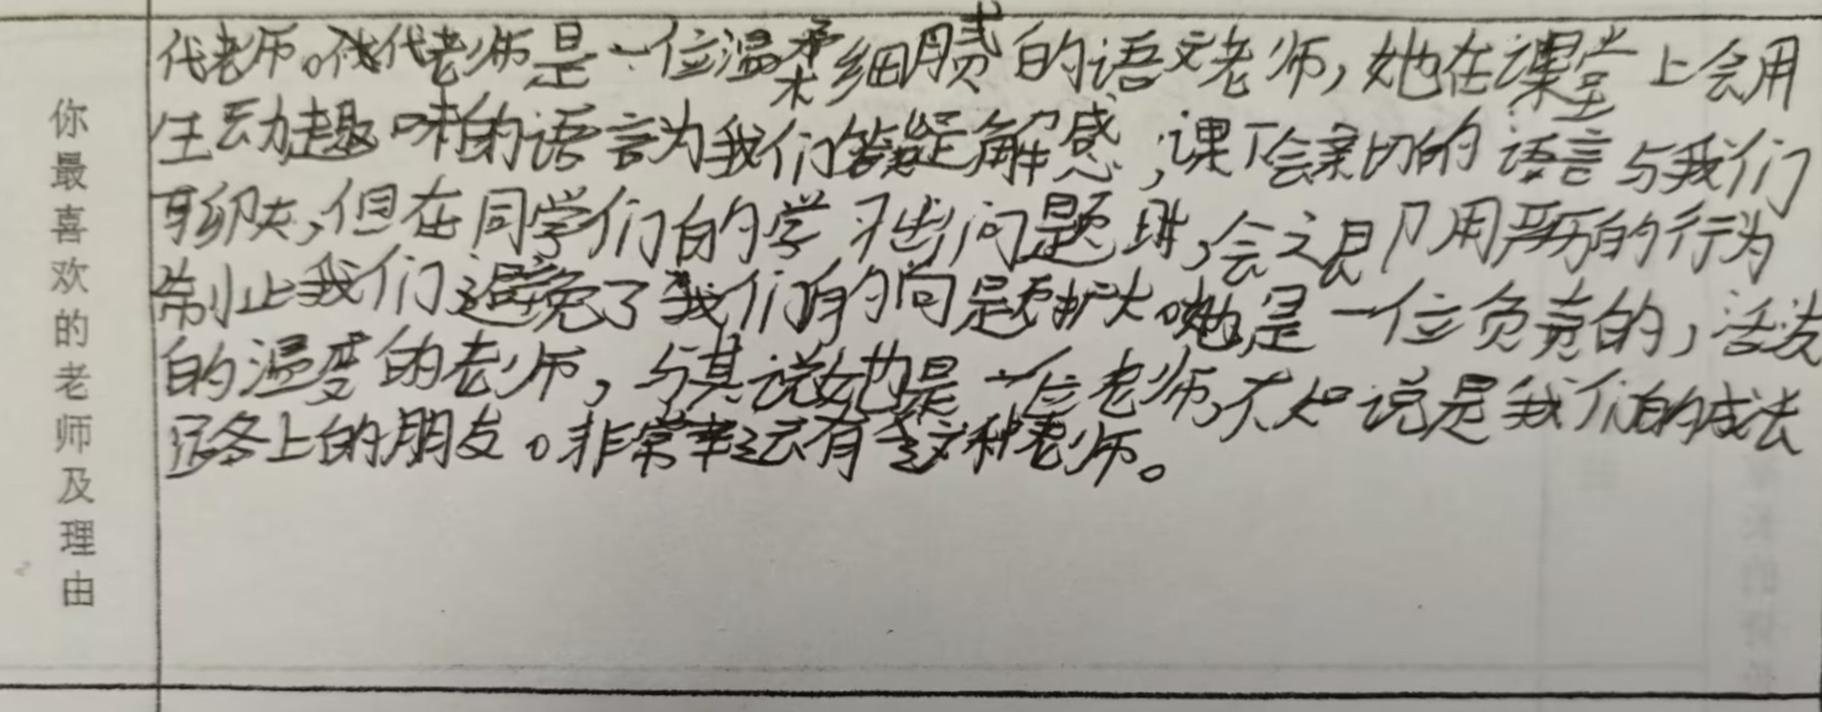 你最喜欢的老师及理由
代老师。代老师是一位温柔细腻的语文老师,她在课堂上会用
生动趣味的语言为我们答疑解惑,课下会亲切的语言与我们
聊天,但在同学们的学习出问题时,会立即用严厉的行为
制止我们避免了我们的问题扩大。她是一位负责的,活泼
的温度的老师,与其说她是一位老师,不如说是我们的成长
道路上的朋友。非常幸运有这种老师。